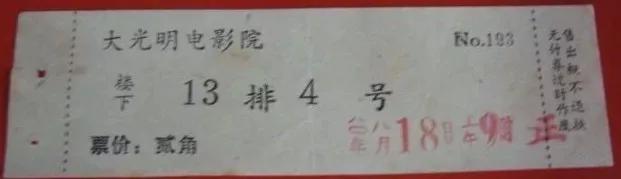 大光明电影院 No.193
楼下 13 排 4 号
八月18日上午9时 正
票价：贰角
售出概不退换
无付券过时作废